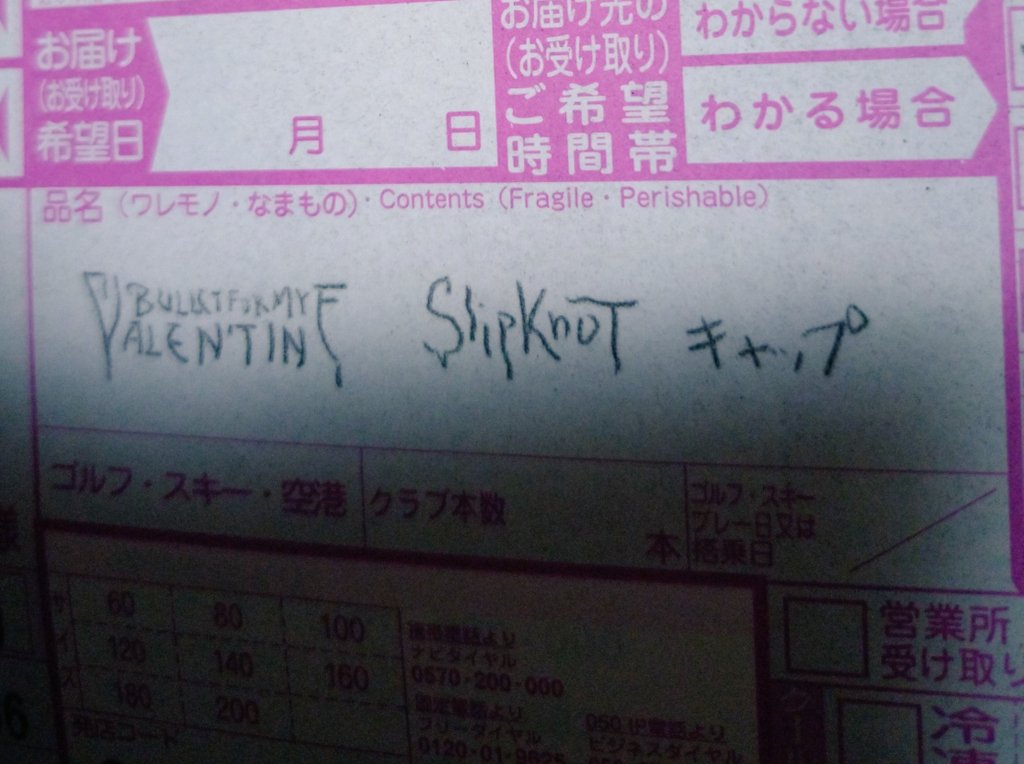 お届け
(お受け取り)
希望日
月 日
お届け先の
(お受け取り)
ご希望
時間帯
わからない場合
わかる場合
品名(ワレモノ・なまもの)・Contents (Fragile・Perishable)
BULLET FOR MY
VALENTINE
SlipKnoT キャップ
ゴルフ・スキー・空港
クラブ本数
本
ゴルフ・スキー
プレー日又は
搭乗日
サイズ
60 80 100
120 140 160
180 200
発店コード
携帯電話より
ナビダイヤル
0570-200-000
固定電話より
フリーダイヤル
0120-01-9625
050 IP電話より
ビジネスダイヤル
営業所
受け取り
冷
凍
様